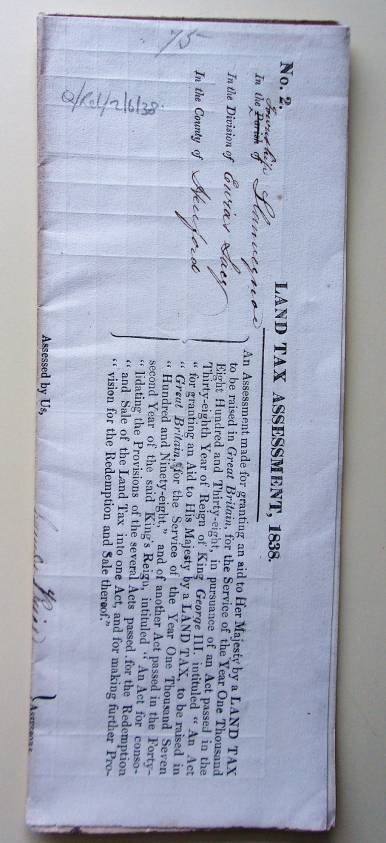 75
Q/Rel/2/6/38
No. 2.
LAND TAX ASSESSMENT, 1838.
Township
In the Parish of Llanveynoe
In the Division of Ewias Lacy
In the County of Hereford
An Assessment made for granting an aid to Her Majesty by a LAND TAX
to be raised in Great Britain, for the Service of the Year One Thousand
Eight Hundred and Thirty-eight, in pursuance of an Act passed in the
Thirty-eighth Year of Reign of King George III, intituled "An Act
"for granting an Aid to His Majesty by a LAND TAX, to be raised in
"Great Britain, for the Service of the Year One Thousand Seven
"Hundred and Ninety-eight," and of another Act passed in the Forty-
second Year of the said King's Reign, intituled "An Act for conso-
"lidating the Provisions of the several Acts passed for the Redemption
"and Sale of the Land Tax into one Act, and for making further Pro-
"vision for the Redemption and Sale thereof."
Assessed by Us,